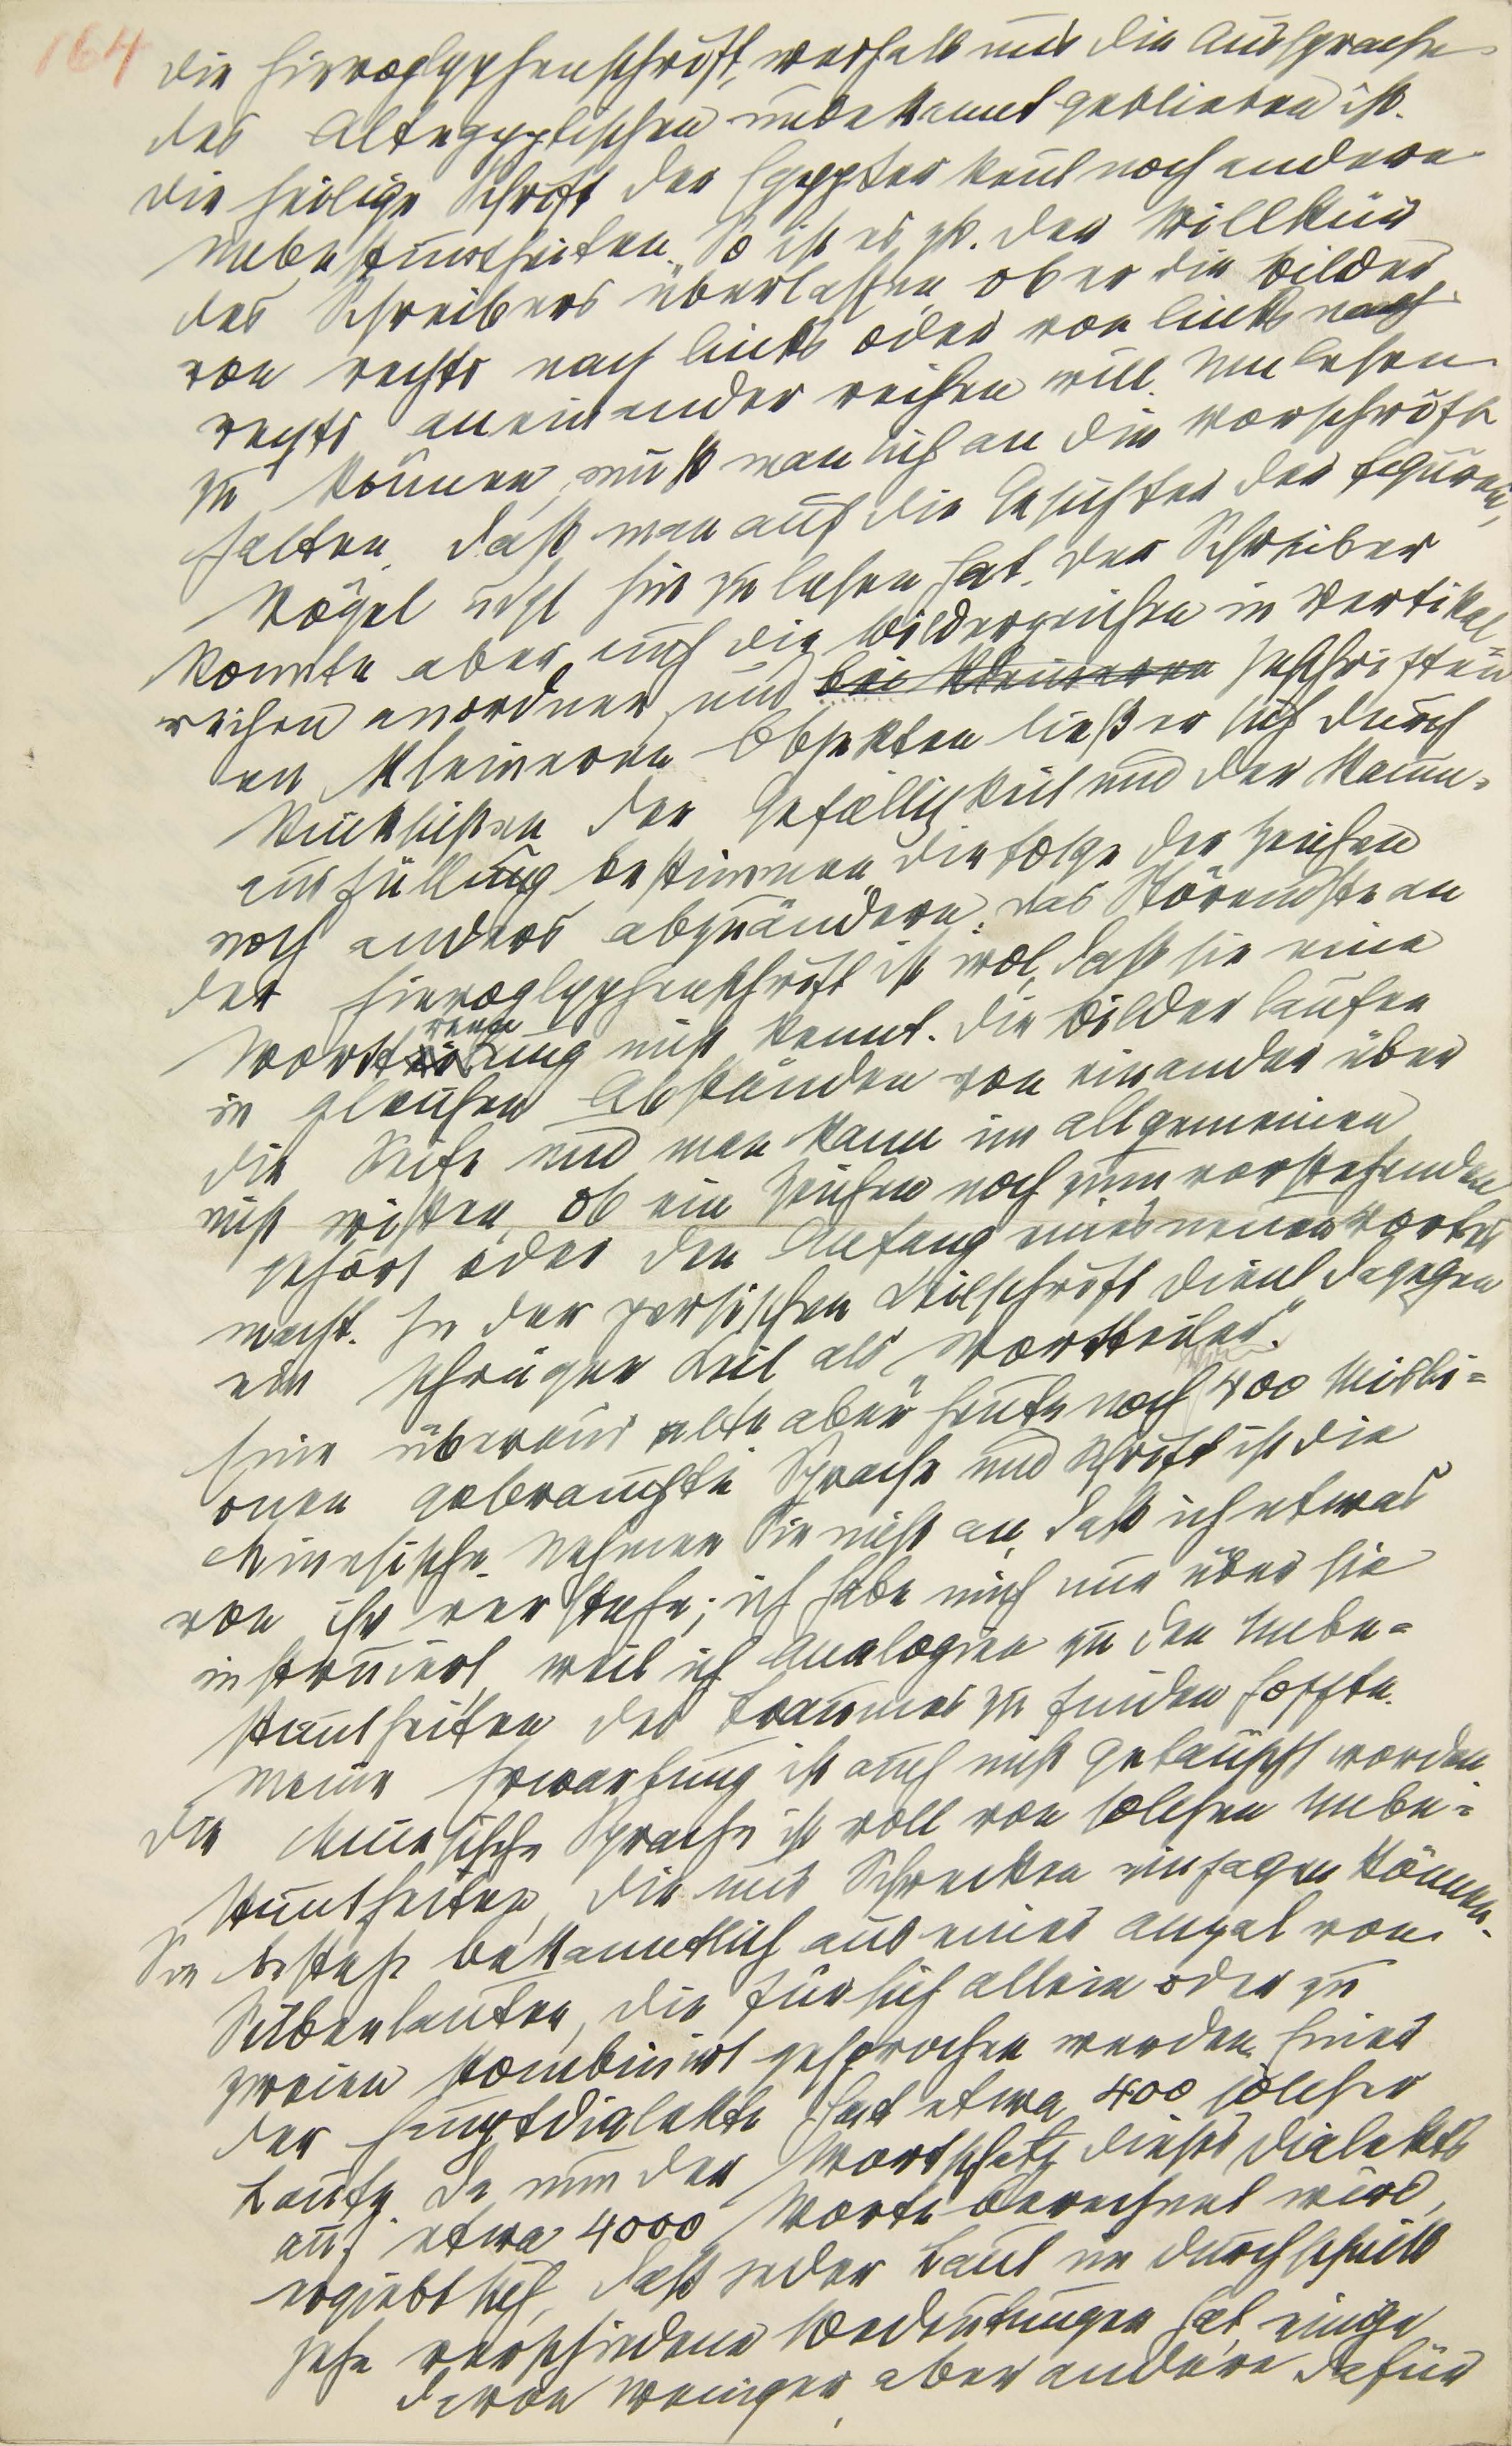 164
die Hieroglyphenschrift, weshalb uns die Aussprache
des Altegyptischen unbekannt geblieben ist.
Die heilige Schrift der Egypter kennt noch andere
Unbestimmtheiten. So ist es zB. der Willkür
des Schreibers überlassen, ob er die Bilder
von rechts nach links oder von links nach
rechts aneinander reihen will. Um lesen
zu können, muß man sich an die Vorschrift
halten, daß man auf die Gesichter der Figuren,
Vögel udgl hin zu lesen hat. Der Schreiber
konnte aber auch die Bilderzeichen in Vertikal-
reihen anordnen und bei kleineren Inschriften
an kleineren Objekten ließ er sich durch
Rücksichten der Gefälligkeit und der Raum-
ausfüllung bestimmen, die Folge der Zeichen
noch anders abzuändern. Das Störendste an
der Hieroglyphenschrift ist wol, daß sie eine
Worttrennung nicht kennt. Die Bilder laufen
in gleichen Abständen von einander über
die Seite und man kann im allgemeinen
nicht wissen, ob ein Zeichen noch zum vorstehenden
gehört oder den Anfang eines neuen Wortes
macht. In der persischen Keilschrift dient dagegen
ein schräger Keil als „Wortteiler."
Eine überaus alte aber heute noch von 400 Milli-
onen gebrauchte Sprache und Schrift ist die
chinesische. Nehmen Sie nicht an, daß ich etwas
von ihr verstehe; ich habe mich nur über sie
instruiert, weil ich Analogien zu den Unbe-
stimmtheiten des Traumes zu finden hoffte.
Meine Erwartung ist auch nicht getäuscht worden
Die chinesische Sprache ist voll von solchen Unbe-
stimmtheiten, die uns Schrecken einjagen können.
Sie besteht bekanntlich aus einer Anzal von
Silbenlauten, die für sich allein oder zu
zweien kombinirt gesprochen werden. Einer
der Hauptdialekte hat etwa 400 solcher
Laute. Da nun der Wortschatz dieses Dialekts
auf etwa 4000 Worte berechnet wird,
ergiebt sich, daß jeder Laut im Durchschnitt
zehn verschiedene Bedeutungen hat, einige
davon weniger, aber andere dafür